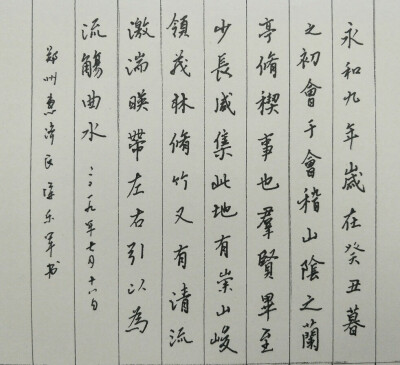 永和九年歲在癸丑暮
之初會于會稽山陰之蘭
亭脩稧事也羣賢畢至
少長咸集此地有崇山峻
領茂林脩竹又有清流
激湍暎帶左右引以為
流觴曲水 二〇一九年七月十六日
郑州惠济 军书